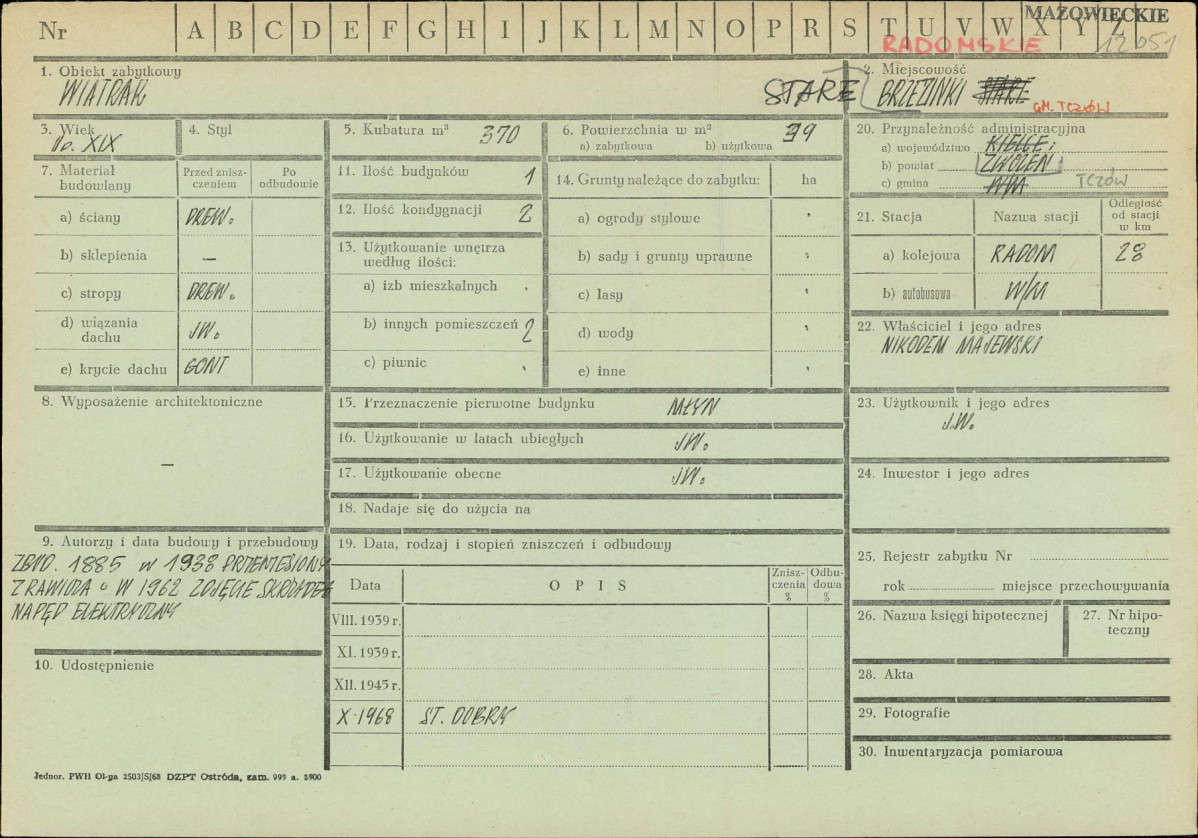 Nr A B C D E F G H I J K L M N O P R S T U V W X Y Z
MAZOWIECKIE
RADOMSKIE 12051
1. Obiekt zabytkowy
WIATRAK
2. Miejscowość
STARE BRZEZINKI STARE
GM. TCZÓW
3. Wiek
XIX
4. Styl
5. Kubatura m³ 370
6. Powierzchnia w m² 39
a) zabytkowa b) użytkowa
20. Przynależność administracyjna
a) województwo KIELCE
b) powiat ZWOLEŃ
c) gmina W/M TCZÓW
7. Materiał budowlany
Przed zniszczeniem
Po odbudowie
a) ściany DREW.
b) sklepienia —
c) stropy DREW.
d) wiązania dachu JW.
e) krycie dachu GONT
11. Ilość budynków 1
12. Ilość kondygnacji 2
13. Użytkowanie wnętrza
według ilości:
a) izb mieszkalnych
b) innych pomieszczeń 2
c) piwnic
14. Grunty należące do zabytku: ha
a) ogrody stylowe
b) sady i grunty uprawne
c) lasy
d) wody
e) inne
21. Stacja
Nazwa stacji
Odległość
od stacji
w km
a) kolejowa RADOM 28
b) autobusowa W/M
22. Właściciel i jego adres
NIKODEM MAJEWSKI
8. Wyposażenie architektoniczne
—
15. Przeznaczenie pierwotne budynku MŁYN
16. Użytkowanie w latach ubiegłych JW.
17. Użytkowanie obecne JW.
18. Nadaje się do użycia na
23. Użytkownik i jego adres
J.W.
24. Inwestor i jego adres
9. Autorzy i data budowy i przebudowy
ZBUD. 1885 W 1938 PRZENIESIONY
Z RAWICA W 1962 ZDJĘCIE SKRZYDEŁ
NAPĘD ELEKTRYCZNY
10. Udostępnienie
19. Data, rodzaj i stopień zniszczeń i odbudowy
Data
OPIS
Zniszczenia %
Odbudowa %
VIII. 1939 r.
XI. 1939 r.
XII. 1945 r.
X. 1968 ST. DOBRY
25. Rejestr zabytku Nr
rok miejsce przechowywania
26. Nazwa księgi hipotecznej
27. Nr hipoteczny
28. Akta
29. Fotografie
30. Inwentaryzacja pomiarowa
Jednor. PWH Ol-pa 2503/S/68 DZPT Ostróda, zam. 999 n. 3900